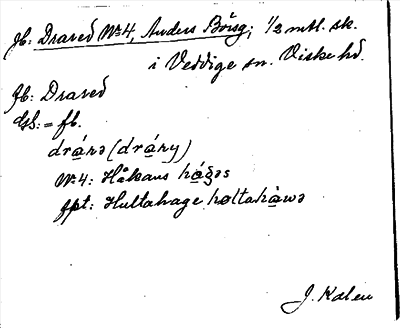 Jb: Drared Nr 4, Anders Börsg; 1/2 mtl. sk.
i Veddige sn. Viske hd.
fb: Drared
dsl: = fb.
dránə (drány)
Nr 4: Håkans hágəs
fpt: Hultahage høltahàwə
J. Kalén